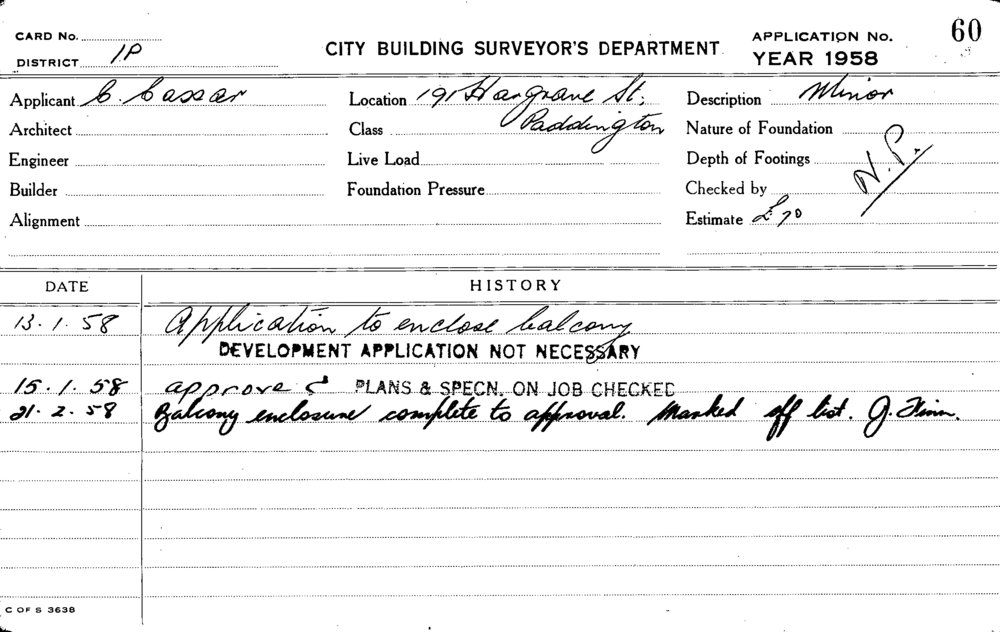 CARD No.
DISTRICT 1P
CITY BUILDING SURVEYOR'S DEPARTMENT
APPLICATION No. 60
YEAR 1958
Applicant C. Cassar
Location 191 Hargrave St,
Paddington
Description Minor
Architect
Class
Nature of Foundation
Engineer
Live Load
Depth of Footings
Builder
Foundation Pressure
Checked by
N.P.
Alignment
Estimate £70
DATE
HISTORY
13.1.58 Application to enclose balcony
DEVELOPMENT APPLICATION NOT NECESSARY
15.1.58 approved PLANS & SPECN. ON JOB CHECKED
21.2.58 Balcony enclosure complete to approval. Marked off list. J. Flinn.
C OF S 3638